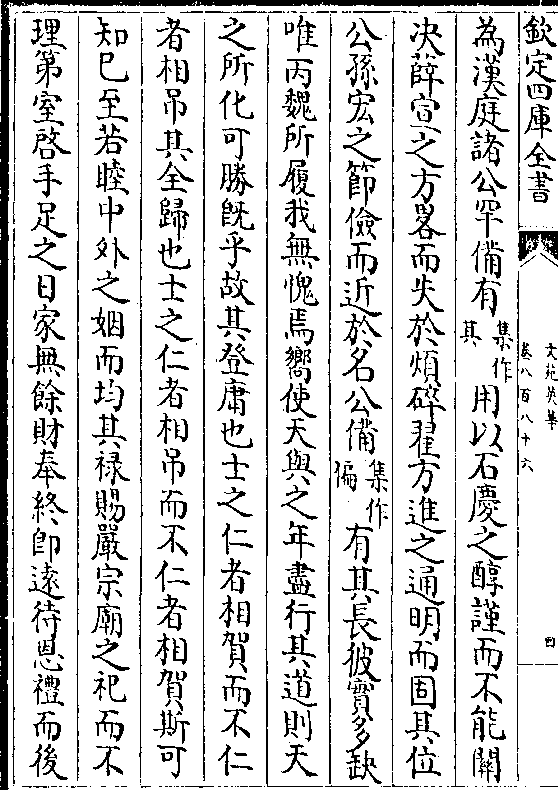 欽定四庫全書
文苑英華
卷八百八十六
四
為漢庭諸公罕備有集作其用以石慶之醇謹而不能關
决薛宣之方畧而失於煩碎翟方進之通明而固其位
公孫宏之節儉而近於名公備集作偏有其長彼實多缺
唯丙魏所履我無愧焉嚮使天與之年盡行其道則天
之所化可勝旣乎故其登庸也士之仁者相賀而不仁
者相吊其全歸也士之仁者相吊而不仁者相賀斯可
知已至若睦中外之姻而均其禄賜嚴宗廟之祀而不
理第室啓手足之日家無餘財奉終即遠待恩禮而後